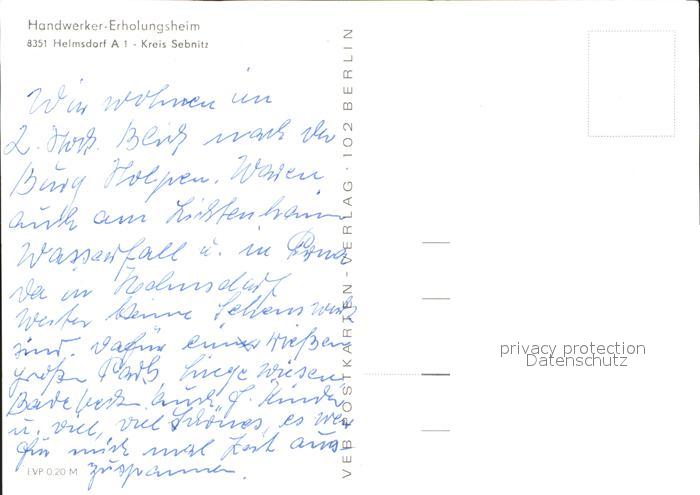 Handwerker-Erholungsheim
8351 Helmsdorf A 1 - Kreis Sebnitz
Wir wohnen im
2. Stock. Blick nach der
Burg Stolpen. Waren
auch am Lichtenhain
Wasserfall u. in Pirna
da in Helmsdorf
weiter keine Sehensw
sind. Dafür ein
großen Park Liegewiesen
Badebecken auch f. Kinder
u. viel, viel Schönes, es war
für mich mal Zeit aus-
zuspannen.
EVP 0,20 M
VEB POSTKARTEN-VERLAG · 102 BERLIN
privacy protection
Datenschutz